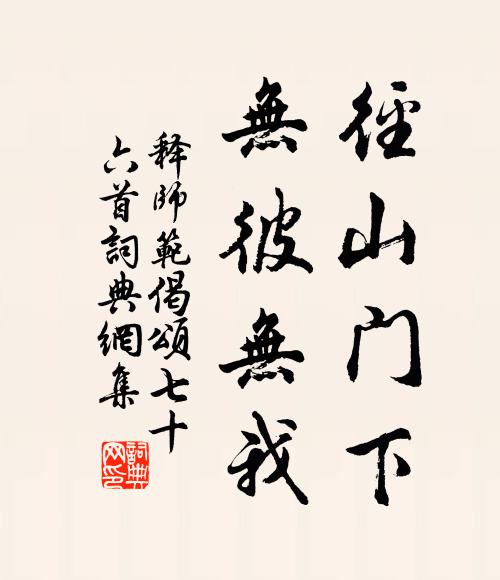 徑山門下
無彼無我
释師範偈頌七十
六首詞典網集
詞典
网印